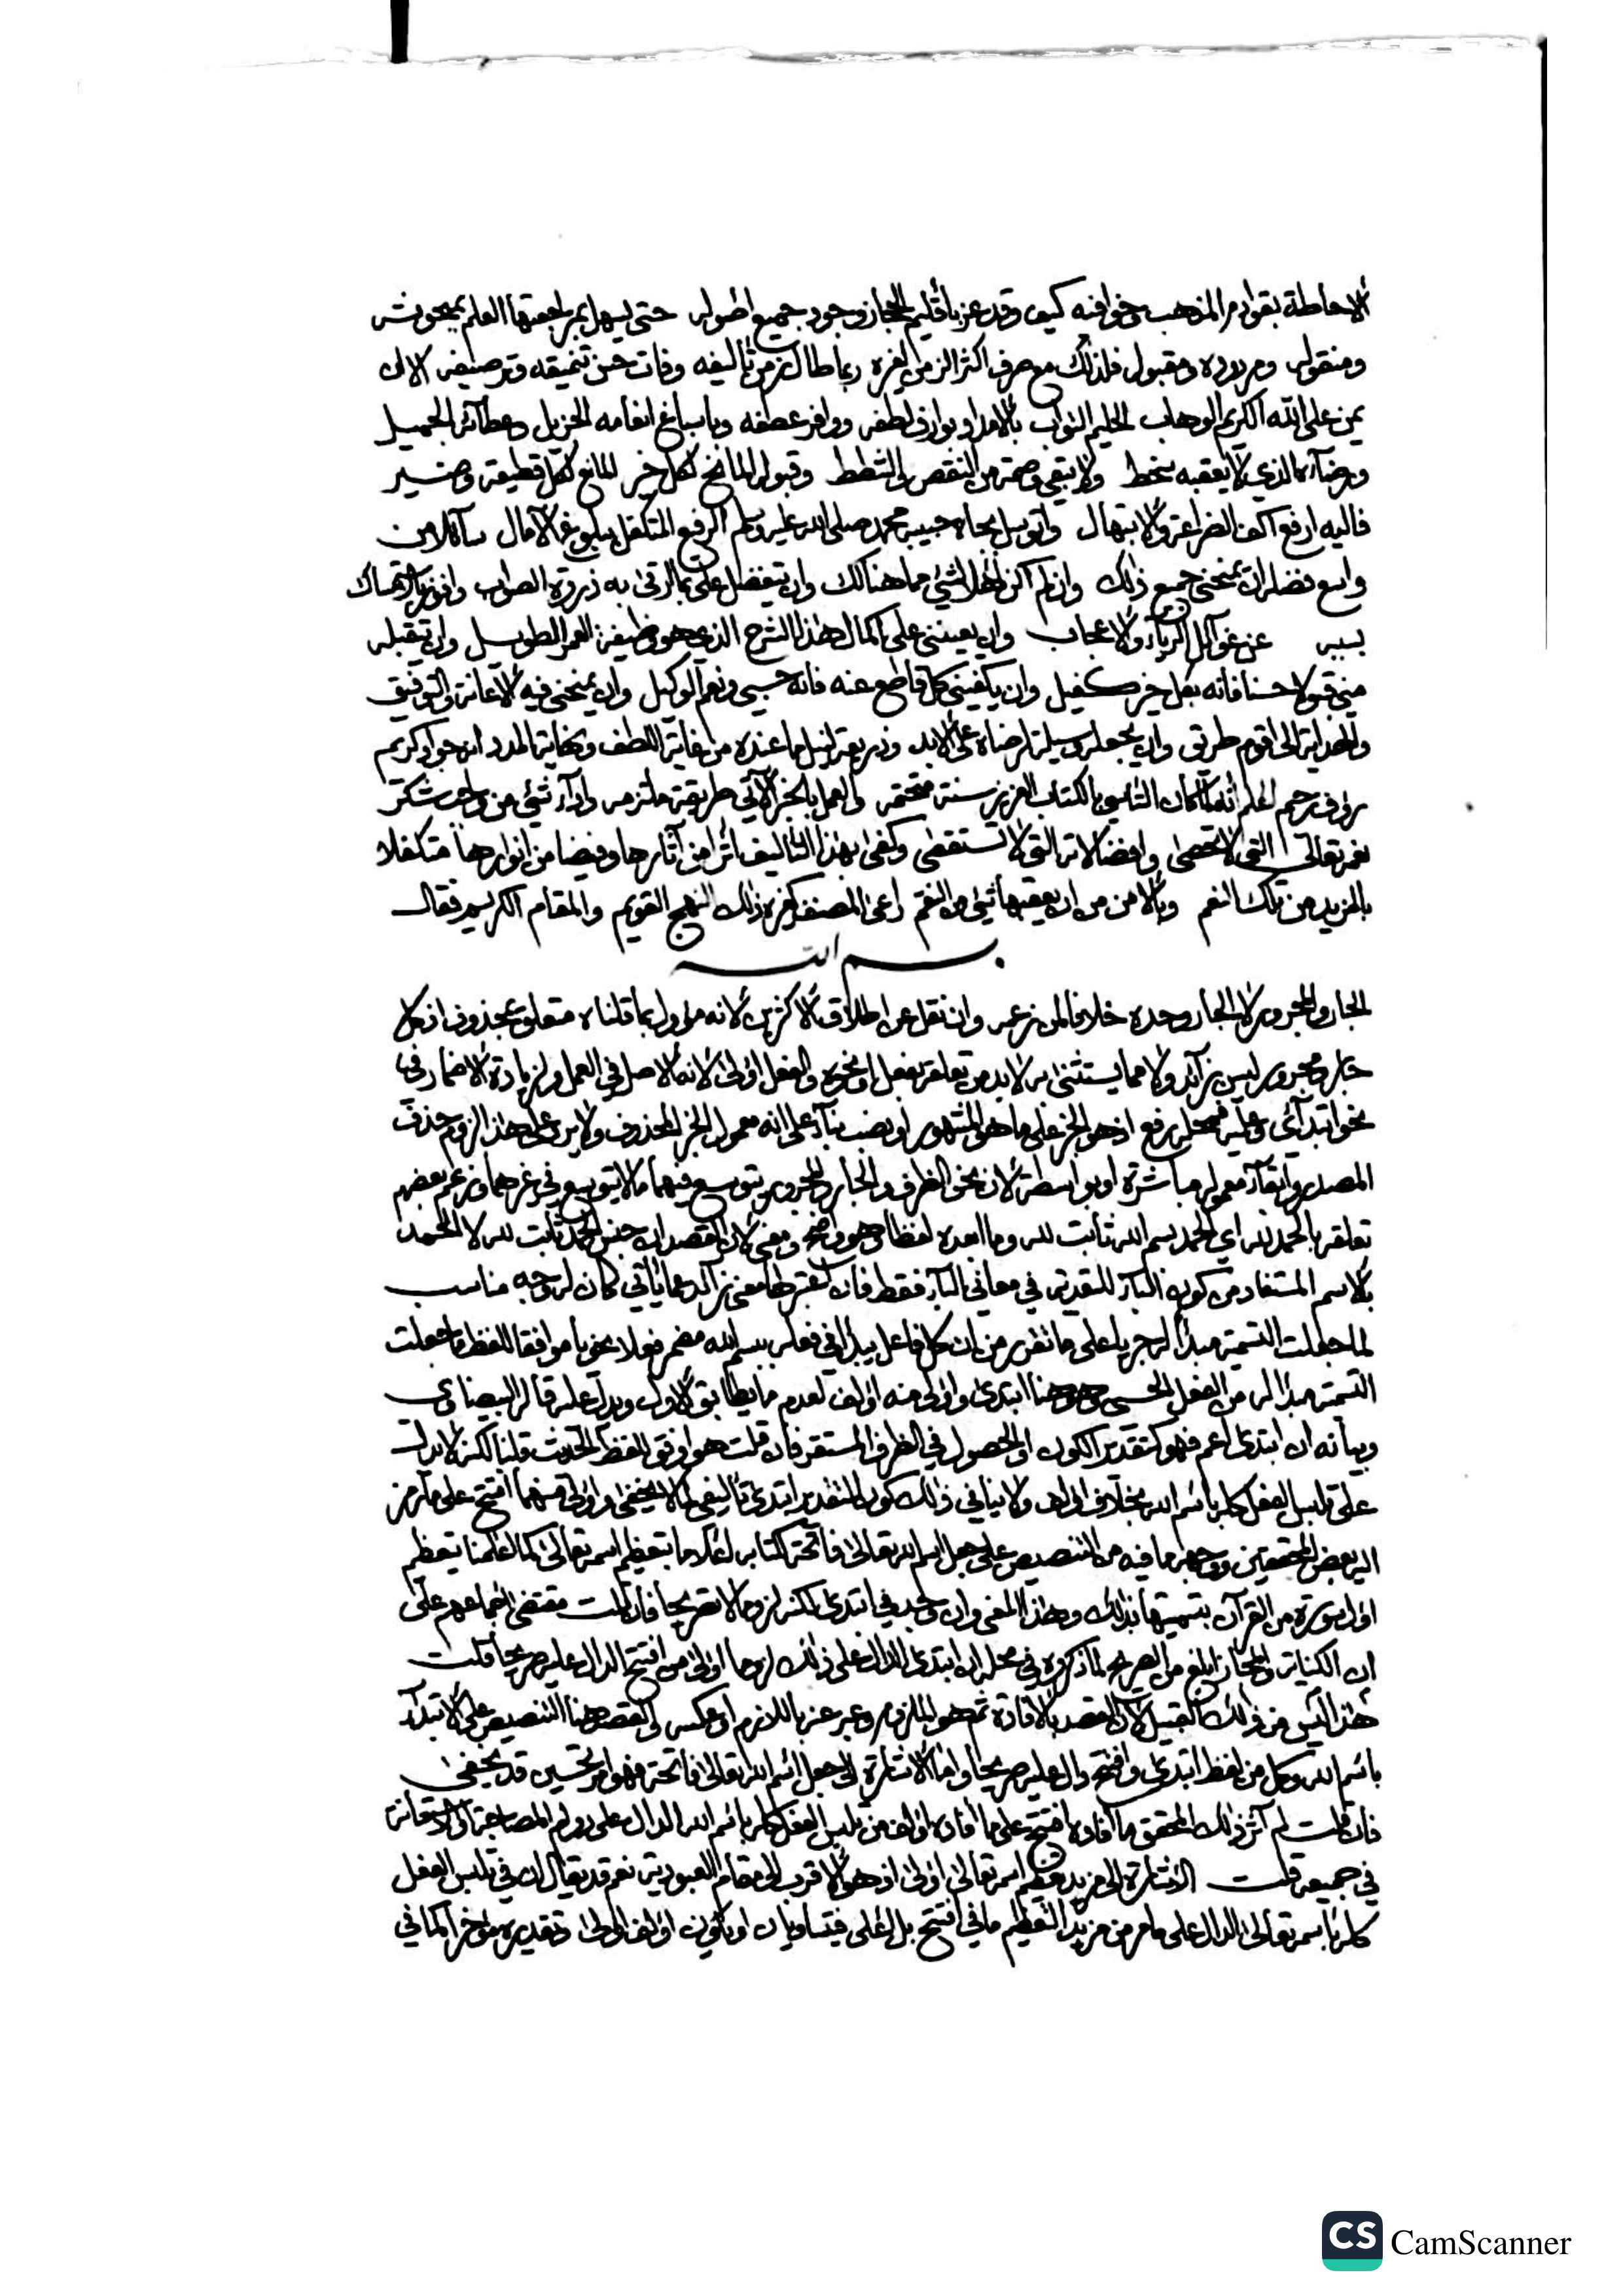 الاحاطة بقوادم المذهب وخوافيه كيف وقد عز باقليم الحجاز وجود جميع اصوله حتى يسهل بمراجعتها العلم بمبحوثه
ومنقوله ومردوده ومقبوله فلذلك مع صرف اكثر الزمن لغيره ربما طال زمن تأليفه وفات حسن تنميقه وترصيفه الا ان
يمن على الله الكريم الوهاب الحليم التواب بالامداد بوارف لطفه ووافر عطفه وباسباغ انعامه الجزيل وعطائه الجميل
ورضاه الذي لا يعقبه سخط ولا يبقى وصمة من النقص والشطط وقبوله المانح لكل خير المانع لكل قطيعة وضير
فاليه ارفع اكف الضراعة والابتهال واتوسل بجاه حبيبه محمد صلى الله عليه وسلم الرفيع المتكفل ببلوغ الآمال سائلا من
واسع فضله ان يمنحني جميع ذلك وان لم اكن اهلا لشيء مما هنالك وان يتفضل علي بما ارقى به ذروة الصواب وافوز بالاستمساك
بسببه عن غوائل الرياء والاعجاب وان يعينني على اكمال هذا الشرح الذي هو وظيفة العمر الطويل وان يتقبله
مني قبولا حسنا فانه بكل خير كفيل وان يكفيني كل قاطع عنه فانه حسبي ونعم الوكيل وان يمنحني فيه الاعانة والتوفيق
والهداية الى اقوم طريق وان يجعله وسيلة لرضاه على الابد وذريعة لنيل ما عنده من غاية اللطف ونهاية المدد انه جواد كريم
رؤف رحيم اعلم انه لما كان التأسي بالكتاب العزيز سنة متحتمة والعمل بالخبر الآتي طريقة ملتزمة واداء شيء من واجب شكر
نعمه تعالى التي لا تحصى وافضالاته التي لا تستقصى وكفى بهذا التأليف اثرا من آثارها وفيضا من انوارها متكفلا
بالمزيد من تلك النعم وبالامن من ان يعقبها شيء من النقم راعى المصنف كغيره ذلك النهج القويم والمقام الكريم فقال
بسم الله
الجار والمجرور لا الجار وحده خلافا لمن زعمه وان نقل عن اطلاق الاكثرين لانه مؤول بما قلناه متعلق بمحذوف اذ كل
جار ومجرور ليس بزائد ولا مما يستثنى به لا بد من تعلقه بفعل او نحوه والفعل اولى لانه الاصل في العمل ولزيادة الاضمار في
نحو ابتدائي وعليه فمحله رفع اذ هو الخبر على ما هو المشهور او نصب بناء على انه معمول الخبر المحذوف ولا يرد على هذا لزوم حذف
المصدر وابقاء معموله مباشرة او بواسطة لان نحو الظرف والجار والمجرور يتوسع فيهما ما لا يتوسع في غيرهما وزعم بعضهم
تعلقه بالحمد لله اي الحمد بسم الله ثابت لله وما ابعده لفظا وهو واضح ومعنى لان القصد ان جنس الحمد ثابت لله لا الحمد
بالاسم المستفاد من كون الباء للتقدير في معاني الباء فقط فان اعتبر لها معنى زائد عما يأتي كان له وجه مناسب
لما جعلت التسمية مبدأ له جريا على ما تقرر من ان كل فاعل يبدأ في فعله ببسم الله مضمر فعلا نحويا موافقا للفظ ما جعلت
التسمية مبدأ له من الفعل الحسي وهو هنا ابتدئ واولى منه اؤلف لعدم ما يطابق الاول ويدل عليه قاله البيضاوي
وبيانه ان ابتدئ اعم فهو كتقدير الكون او الحصول في الظرف المستقر فان قلت هو اوفق للفظ الحديث قلنا لكنه لا يدل
على تلبس الفعل كله باسم الله بخلاف اؤلف ولا ينافي ذلك كون التقدير ابتدئ تأليفي كما لا يخفى واولى منهما افتتح على ما رمز
اليه بعض المحققين ووجهه ما فيه من التنصيص على جعل اسم الله تعالى فاتحة كتابه اعلاما بتعظيم اسمه تعالى كما اعلمنا بتعظيم
اول سورة من القرآن بتسميتها بذلك وهذا المعنى وان وجد في ابتدئ لكنه لزوما لا تصريحا فان قلت مقتضى اجماعهم على
ان الكناية والمجاز ابلغ من الصريح لما ذكروه في محله ان ابتدئ الدال على ذلك لزوما اولى من افتتح الدال عليه صريحا قلت
هذا ليس من ذلك القبيل لان القصد بالافادة ثم هو الملزوم وعبر عنه باللازم او عكسه والقصد هنا التنصيص على الابتداء
باسم الله وكل من لفظ ابتدئ وافتتح دال عليه صريحا واما الاشارة الى جعل اسم الله تعالى فاتحة فهو امر تحسين قد يخفى
فان قلت لم آثر ذلك المحقق ما افاده افتتح على ما افاده اؤلف من تلبس الفعل كله باسم الله الدال على دوام المصاحبة او الاستعانة
في جميعه قلت الاشارة الى مزيد تعظيم اسمه تعالى اولى اذ هو الاقرب الى مقام العبودية نعم قد يقال ان في تلبس الفعل
كله باسمه تعالى الدال على ما مر من مزيد التعظيم ما في افتتح بل اعلى فيتساويان او يكون اؤلف اولى وتقديره مؤخرا كما في
CS CamScanner